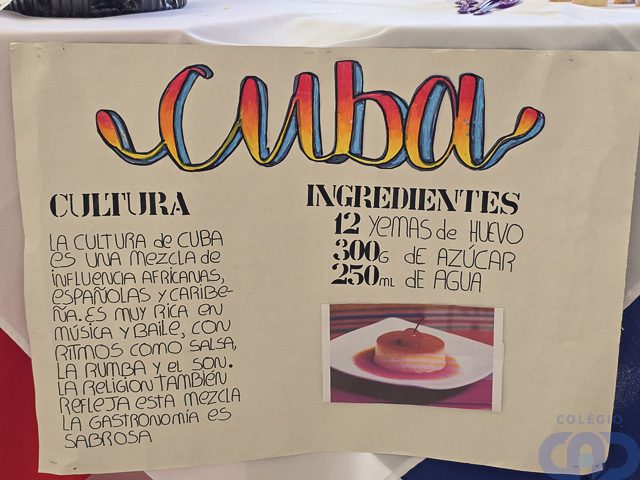 cuba
CULTURA
LA CULTURA de CUBA
ES UNA MEZCLA de
INFLUENCIA AFRICANAS,
ESPAÑOLAS Y CARIBE-
ÑA. ES MUY RICA EN
MÚSICA Y BAILE, CON
RITMOS COMO SALSA,
LA RUMBA Y EL SON.
LA RELIGION TAMBIÉN
REFLEJA ESTA MEZCLA
LA GASTRONOMÍA ES
SABROSA
INGREDIENTES
12 YEMAS de HUEVO
300G DE AZÚCAR
250ML DE AGUA
COLÉGIO